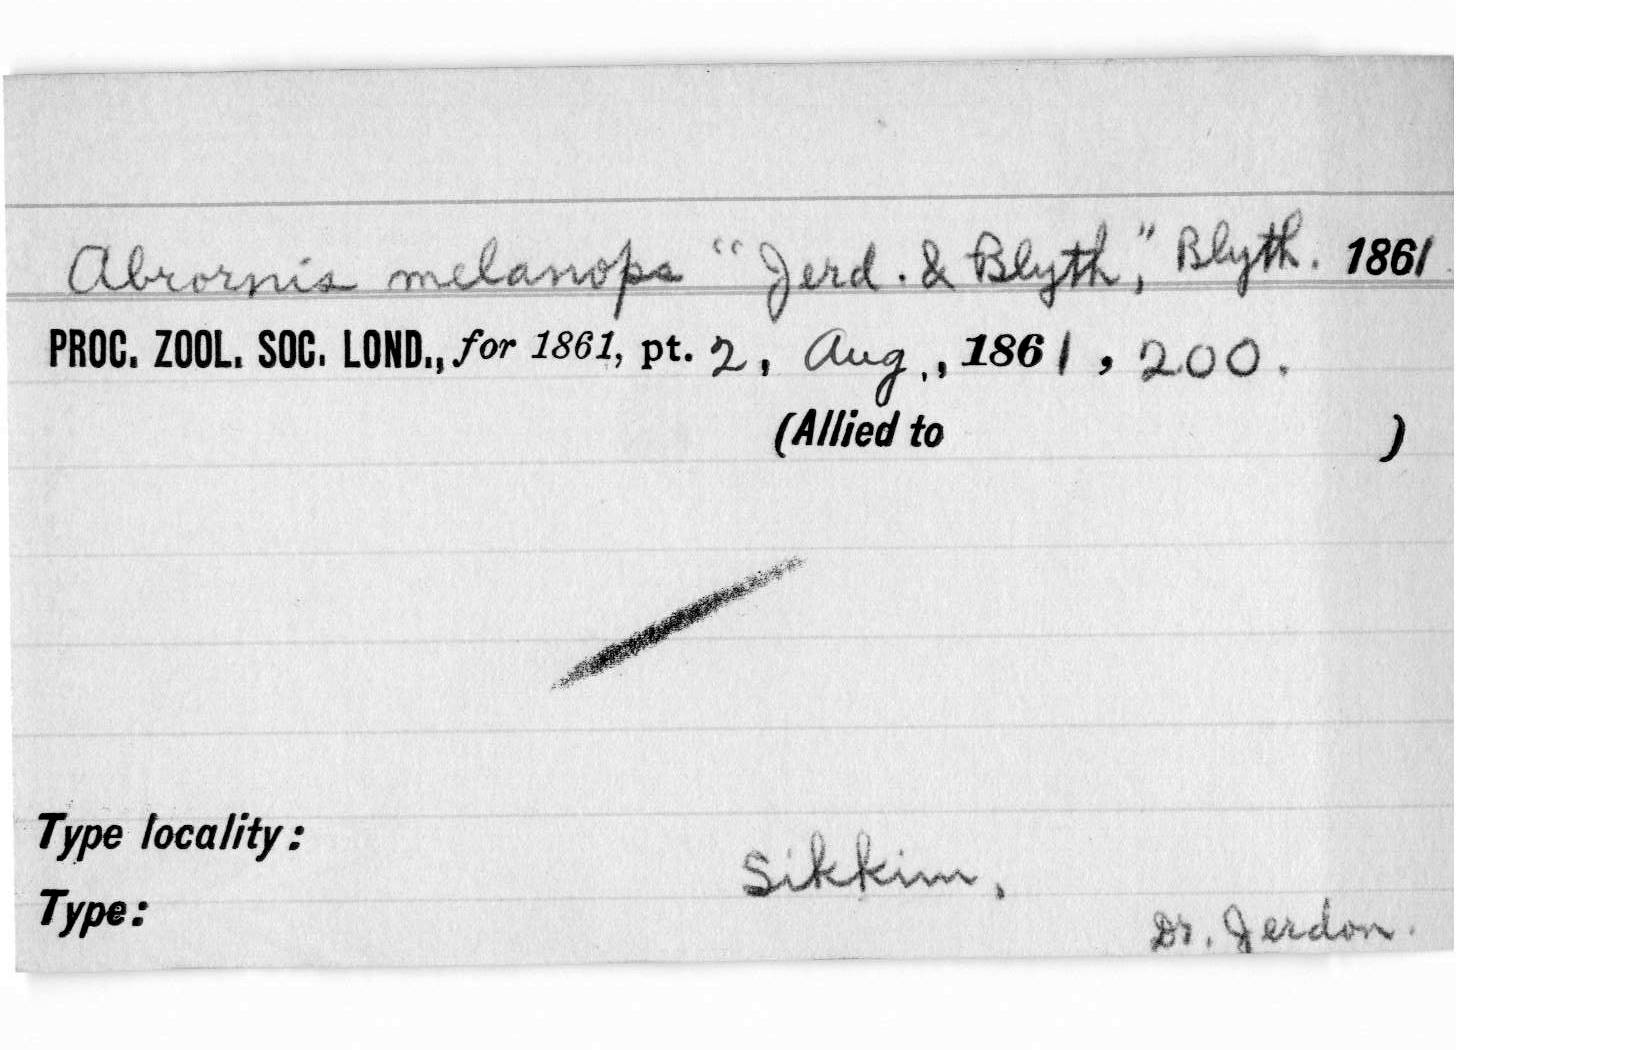 Abrornis melanops "Jerd. & Blyth," Blyth. 1861.
PROC. ZOOL. SOC. LOND., for 1861, pt. 2, Aug., 1861, 200.
(Allied to )
Type locality:
Sikkim,
Type:
Dr. Jerdon.